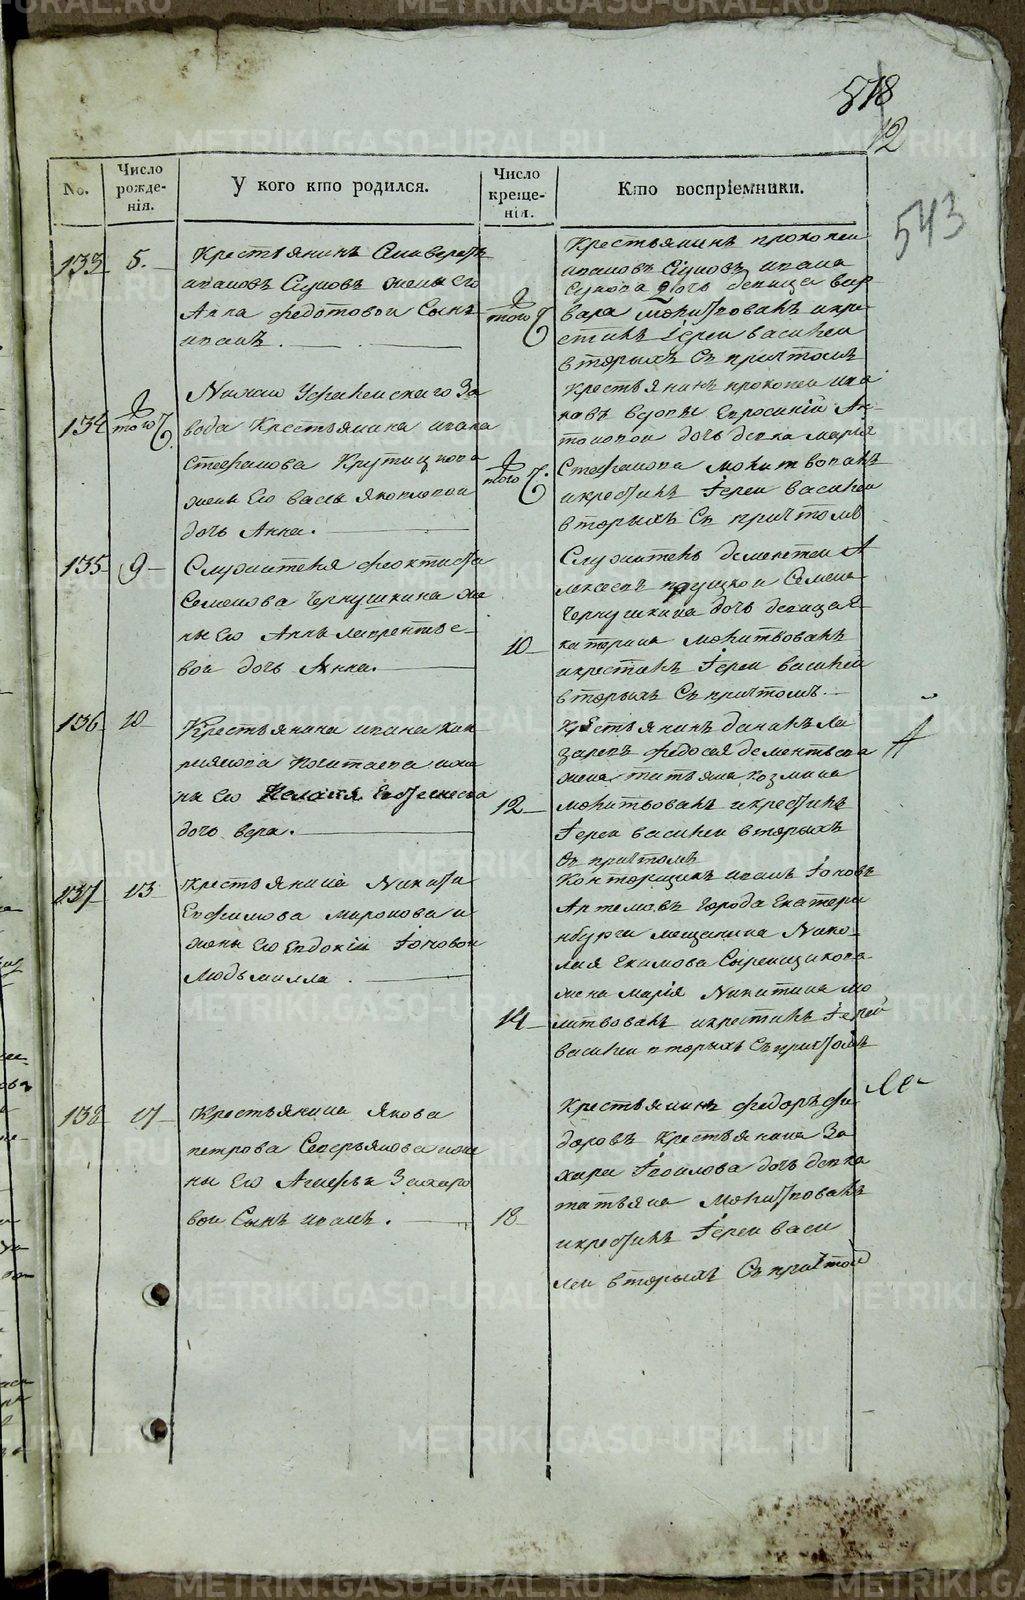 518
12
543
No.
Число рожде-нія.
У кого кто родился.
Число креще-нія.
Кто воспріемники.
133
5.
Крестьянинъ
ивановъ жены его
Анна федотовой Сынъ
иванъ.
того
Крестьянинъ прокопей
ивановъ ивана
дочь девица вар
вара молитвовалъ и кре
стилъ Іереи василеи
вторыхъ Съ причтомъ
134
того
Нижно Уфалейскаго За
вода Крестьянина ивана
Стефанова
жены Его васы яковлевои
дочь Анна.
того
Крестьянинъ прокопеи ива
новъ
дочь девка марія
Стефанова молитвовалъ
и крестилъ Іереи василеи
вторыхъ Съ причтомъ
135
9
Служителя феоктиста
Семенова Чернушкина же
ны Его Анны лаврентье-
вои дочь Анна.
10
Служитель дементеи А
лексеевъ Семена
Чернушкина дочь девица Е
катерина молитвовалъ
и крестилъ Іереи василеи
вторыхъ Съ причтомъ.
136
10
Крестьянина ивана
же
ны Его
дочь вера.
12
Крестьянинъ данилъ ла
заревъ федосея дементьева
жена татьяна козмина
молитвовалъ и крестилъ
Іереи василеи вторыхъ
Съ причтомъ
137
13
Крестьянина Никиты
Ефимова миронова и
жены Его Евдокіи Іововои
людьмилла.
14
Конторщикъ иванъ Іововъ
Артемовъ города Екатери
нбурга мещанина Нико-
лая Екимова Сыренщикова
жена марія Никитина мо
литвовалъ и крестилъ Іереи
василеи вторыхъ Съ причтомъ
138
17
Крестьянина Якова
петрова Северьянова и же
ны Его Агафьи Захаро
вои Сынъ иванъ.
18
Крестьянинъ федоръ фе
доровъ Крестьянина За
хара дочь девка
татьяна молитвовалъ
и крестилъ Іереи васи
леи вторыхъ Съ причтом
METRIKI.GASO-URAL.RU